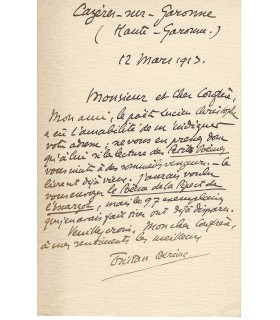 Cazères-sur-Garonne
(Haute-Garonne.)
12 Mars 1913.
Monsieur et Cher Confrère,
Mon ami, le poète Lucien Christophe
a eu l'amabilité de m'indiquer
votre adresse; ne vous en prenez donc
qu'à lui si la lecture des Petits Poèmes
vous invite à des sommeils vengeurs. - Le
livre est déjà vieux. J'aurais voulu
vous envoyer le Poème de la Pipe et de
l'Escargot, mais les 97 exemplaires
que j'en avais fait tirer ont déjà disparu.
Veuillez croire, Mon cher Confrère,
à mes sentiments les meilleurs
Tristan Derème